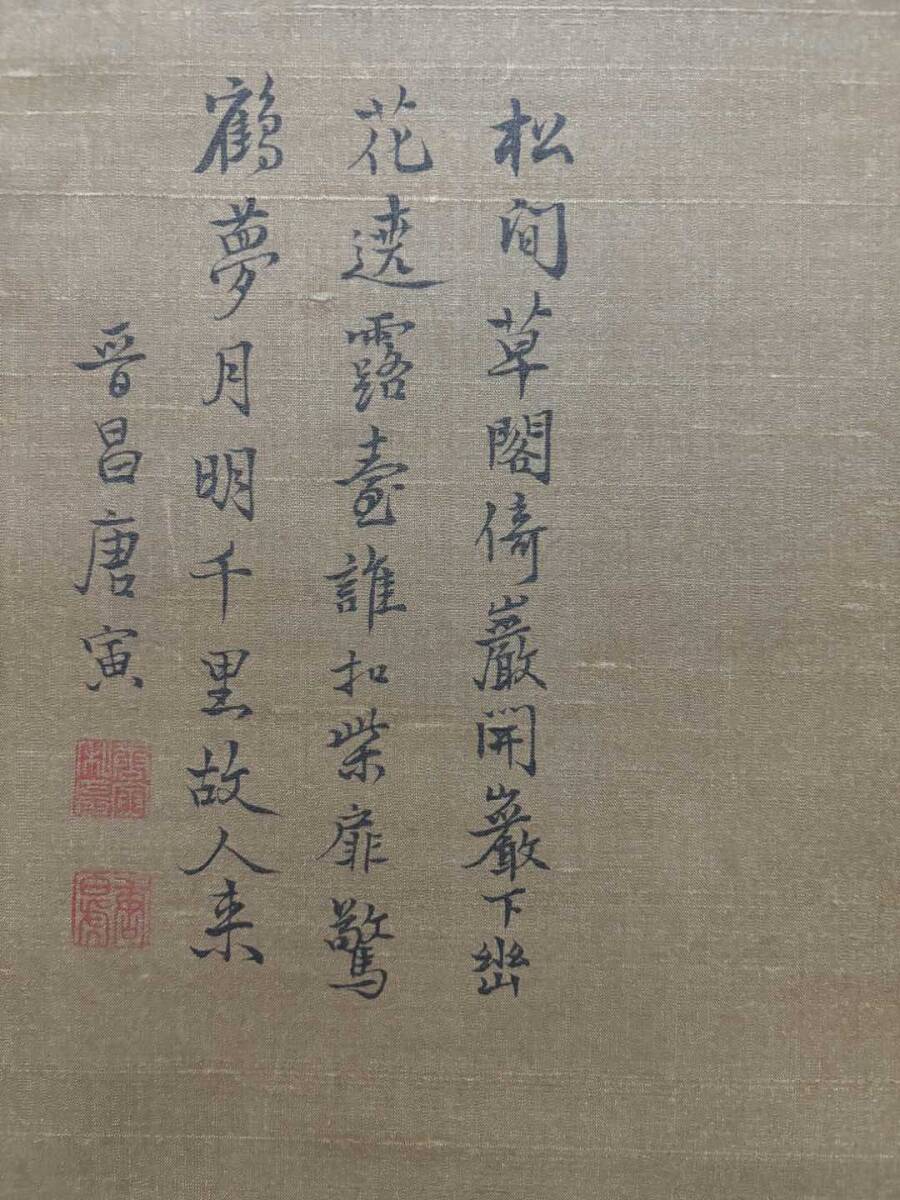 松間草閣倚巖開巖下巒
花遶露臺誰扣柴扉驚
鶴夢月明千里故人來
晉昌唐寅